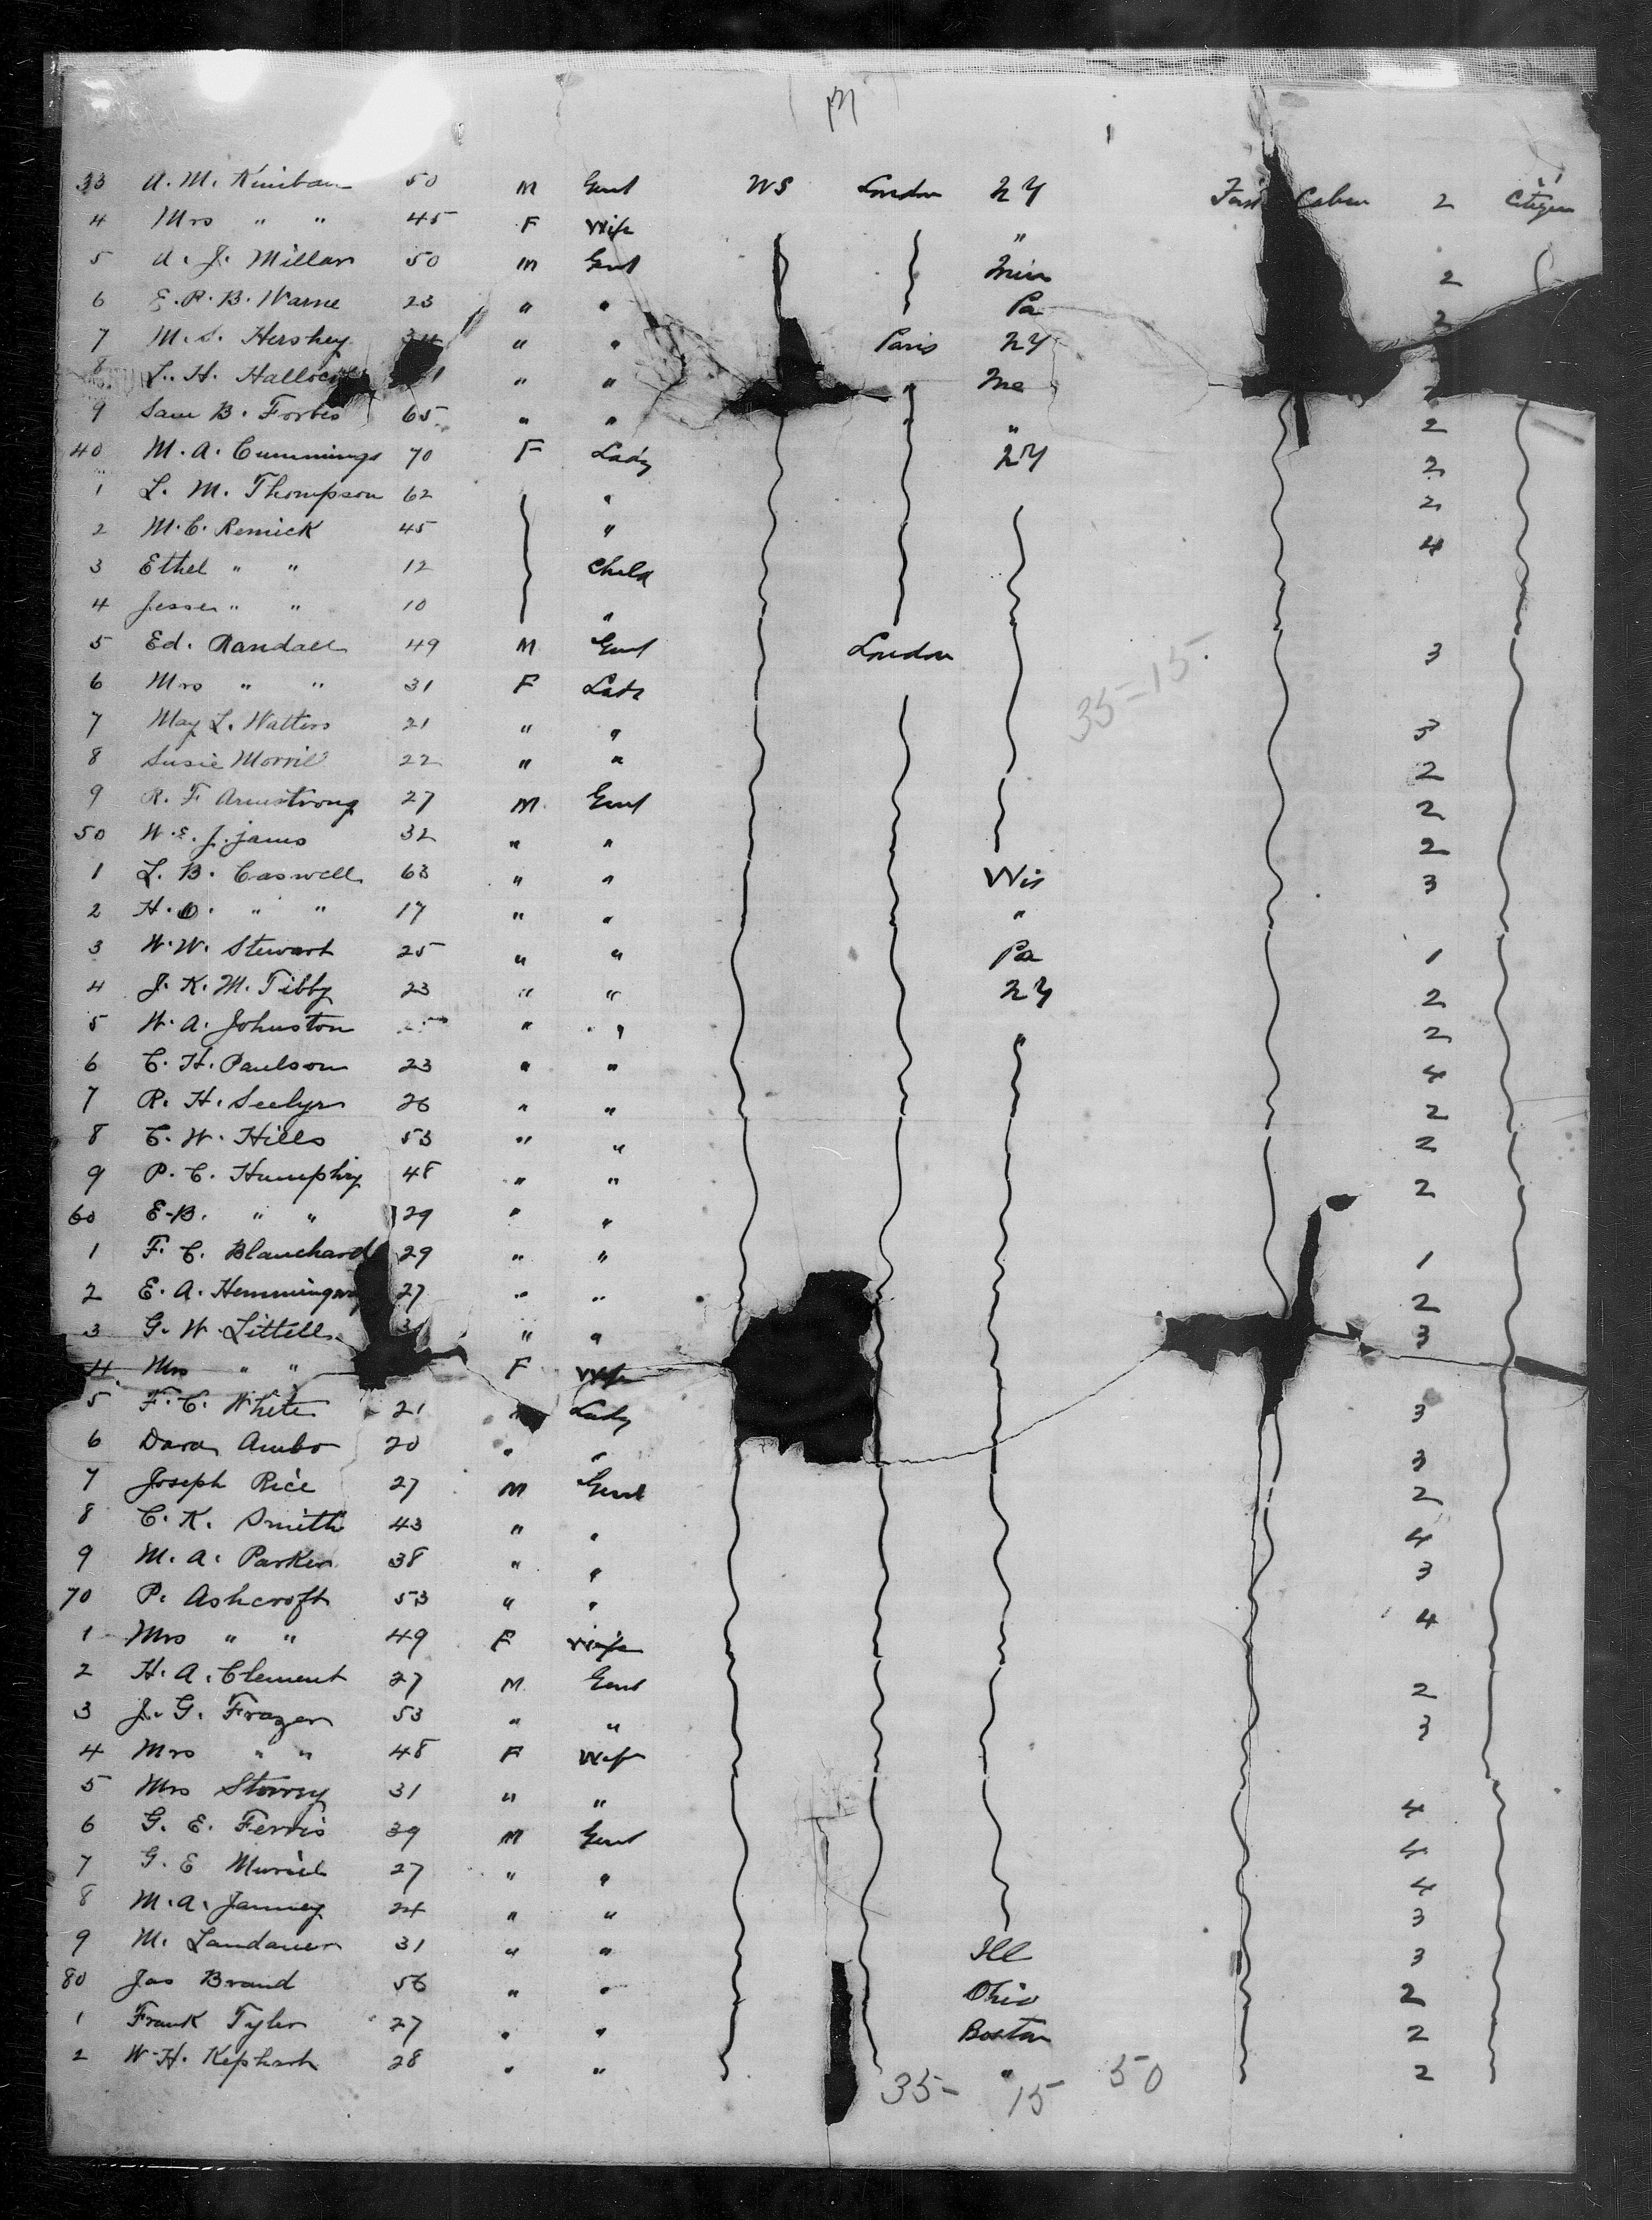 33 A. M. Kimball 50 M Gent US London NY First Cabin 2 Citizen
4 Mrs " " 45 F Wife "
5 A. J. Millar 50 M Gent Min 2
6 E. R. B. Warne 23 " " Pa 2
7 M. S. Hershey " " Paris NY
8 L. H. Hallock " " " Me 2
9 Sam B. Forbes 65 " " " " 2
40 M. A. Cummings 70 F Lady NY 2
1 L. M. Thompson 62 " 2
2 M. C. Remick 45 " 4
3 Ethel " " 12 Child
4 Jesse " " 10 "
5 Ed. Randall 49 M Gent London 3
6 Mrs " " 31 F Lady
35-15
7 May L. Watters 21 " " 3
8 Susie Morrill 22 " " 2
9 R. F Armstrong 27 M Gent 2
50 W. E. J. James 32 " " 2
1 L. B. Caswell 63 " " Wis 3
2 H. O. " " 17 " " "
3 W. W. Stewart 25 " " Pa 1
4 J. K. M. Tibby 23 " " NY 2
5 W. A. Johnston " " " 2
6 C. H. Paulson 23 " " 4
7 R. H. Seelye 26 " " 2
8 C. W. Hills 53 " " 2
9 P. C. Humphry 48 " " 2
60 E. B. " " 29 " "
1 F. C. Blanchard 29 " " 1
2 E. A. Hemmingway 27 " " 2
3 G. W. Littell " " 3
4 Mrs " " F Wife
5 F. C. White 21 " Lady 3
6 Dora 20 " " 3
7 Joseph Rice 27 M Gent 2
8 C. K. Smith 43 " " 4
9 M. A. Parker 38 " " 3
70 P. Ashcroft 53 " " 4
1 Mrs " " 49 F Wife
2 H. A. Clement 27 M Gent 2
3 J. G. Frazer 53 " " 3
4 Mrs " " 48 F Wife
5 Mrs Storey 31 " " 4
6 G. E. Ferris 39 M Gent 4
7 G. E 27 " " 4
8 M. A. Janney 24 " " 3
9 M. Landauer 31 " " Ill 3
80 Jas Brand 56 " " Ohio 2
1 Frank Tyler 27 " " Boston 2
2 W. H. Kephart 28 " " " 2
35- 15 50